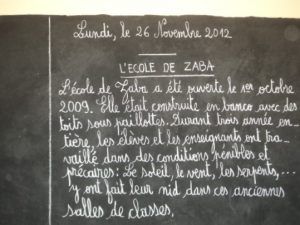 Lundi, le 26 Novembre 2012
L'ECOLE DE ZABA
L'école de Zaba a été ouverte le 1er octobre
2009. Elle était construite en banco avec des
toits sous paillottes. Durant trois année en-
tière, les élèves et les enseignants ont tra-
vaillé dans des conditions pénibles et
précaires: Le soleil, le vent, les serpents,...
y ont fait leur nid dans ces anciennes
salles de classes.